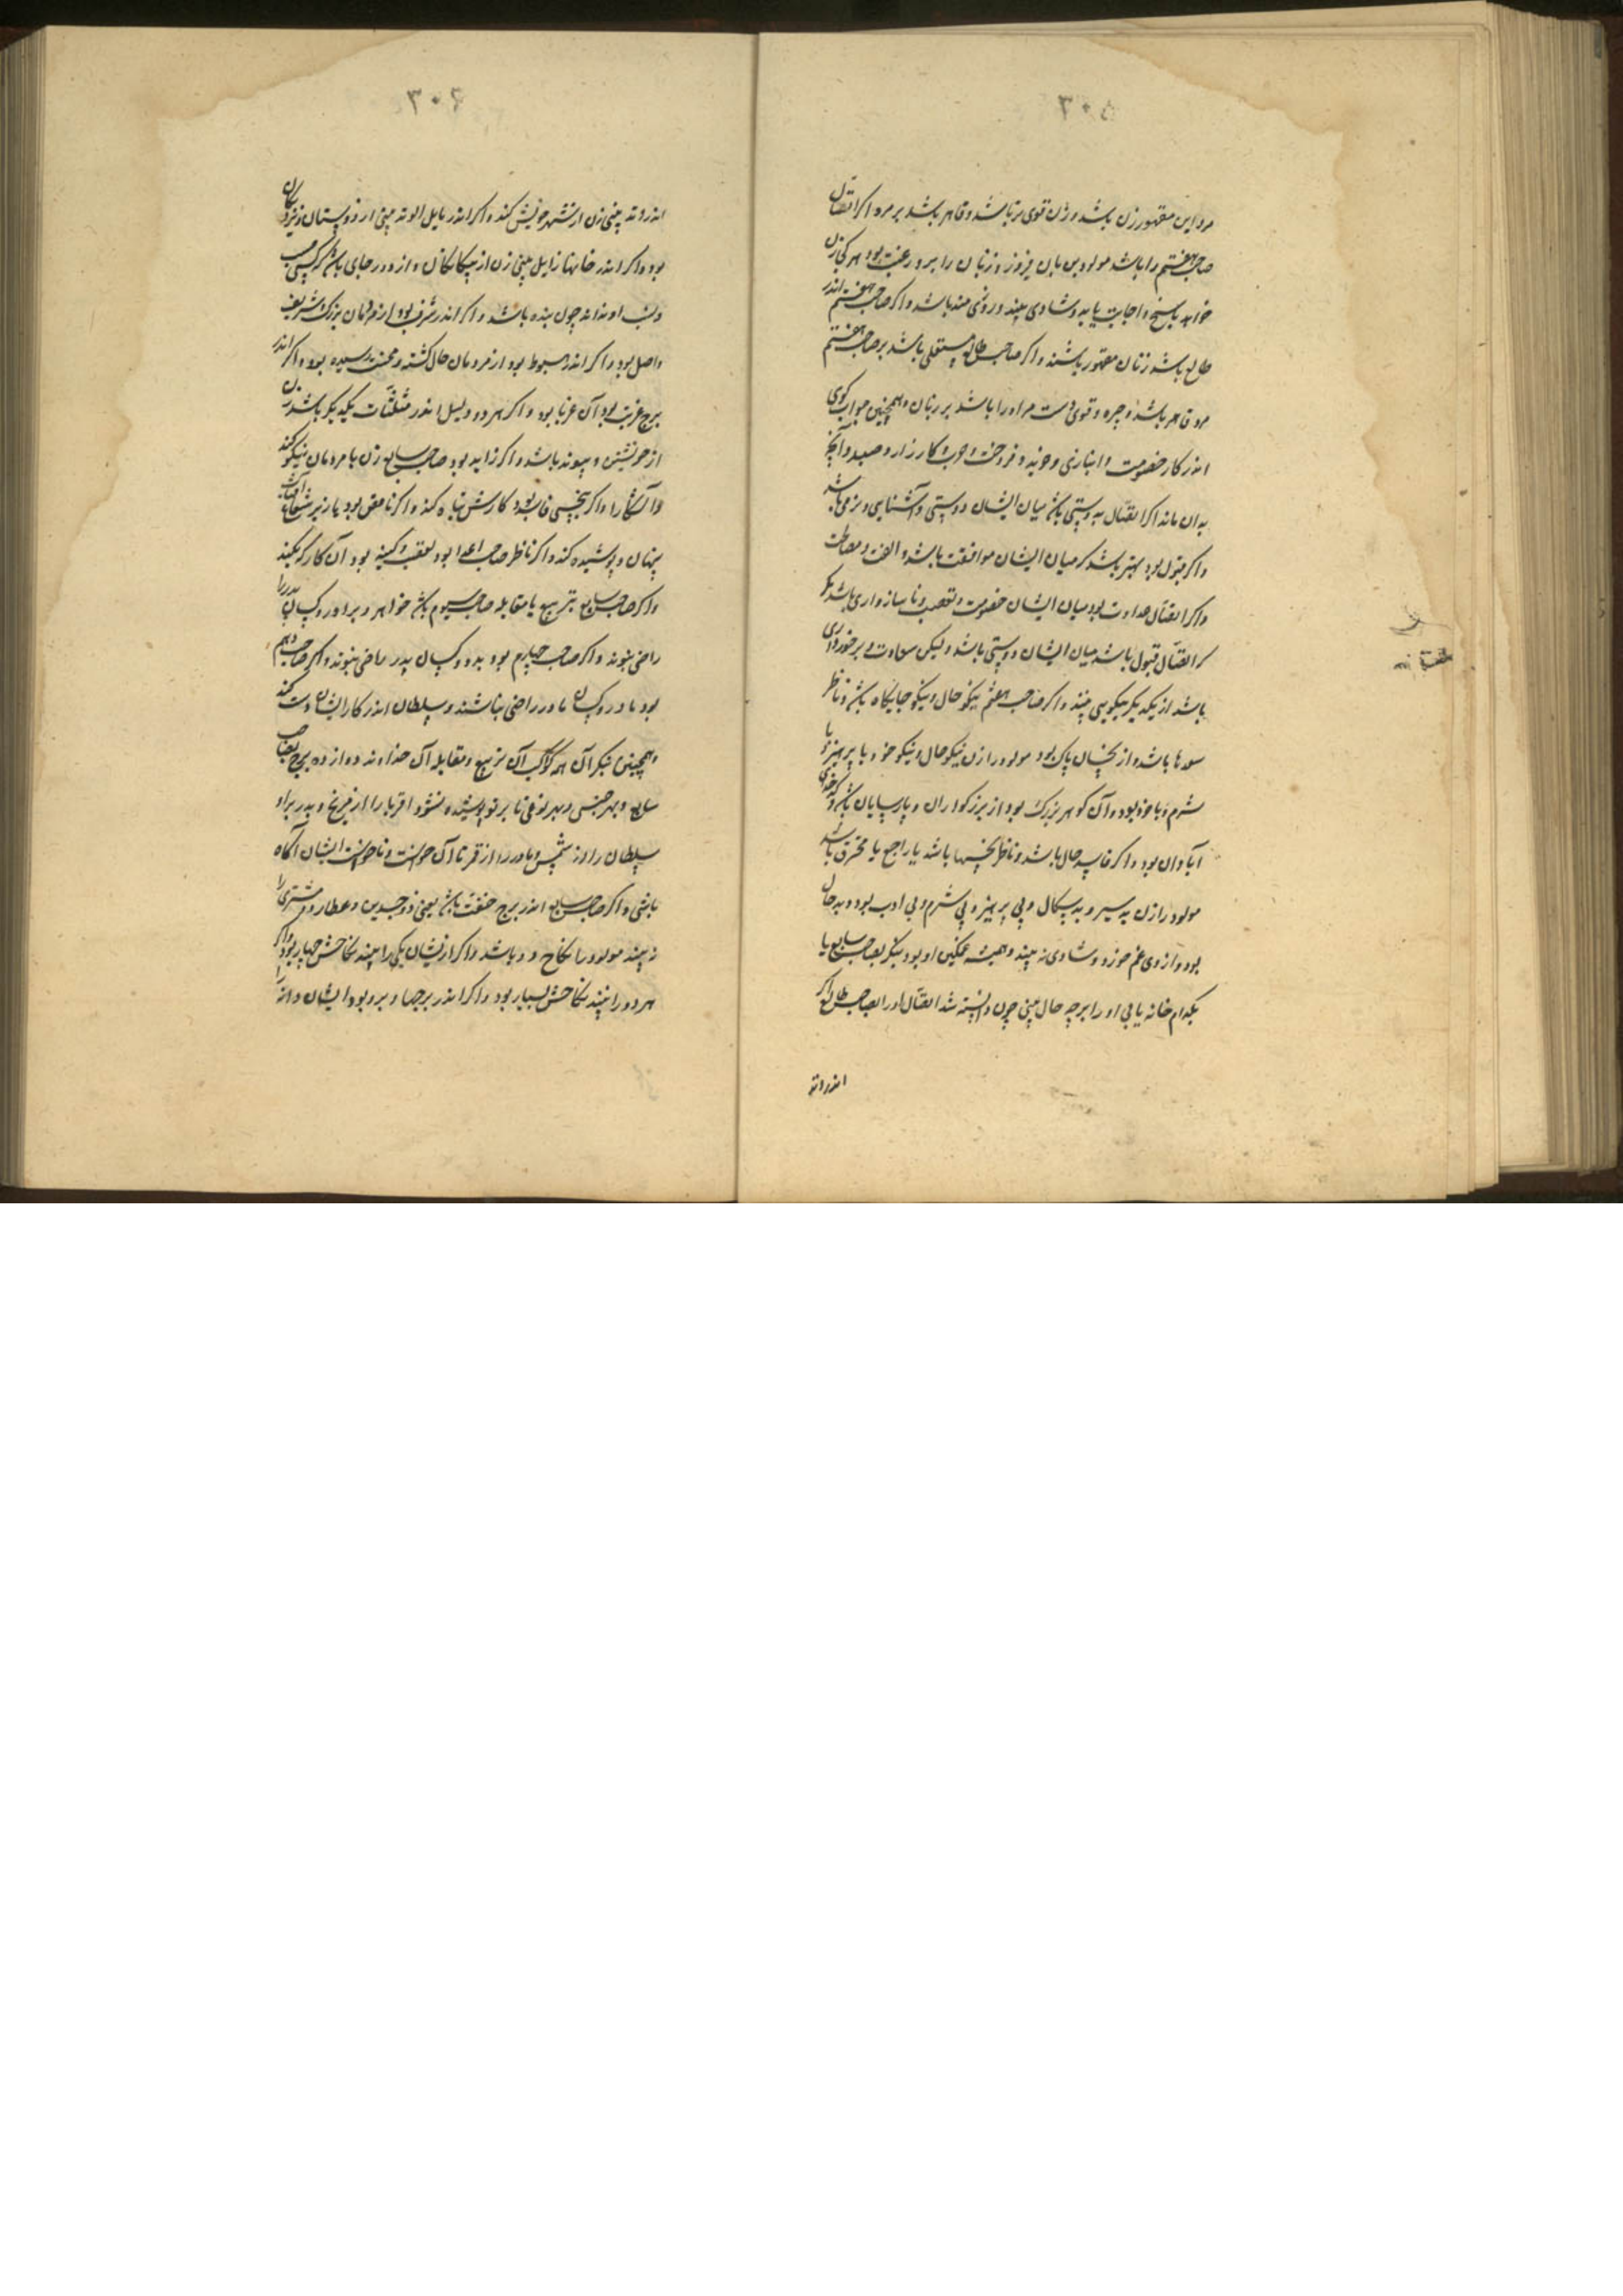 ۳۰۵
مرد این مقهور زن باشد و زن قوی‌تر باشد و قاهر باشد بر مرد اگر اتصال
صاحب هفتم را باشد مولود بدین باب فیروز و زنان را بر او رغبت بود هر کی زن
خواهد پاسخ و اجابت یابد و شادی بیند و روزی مند باشد و اگر صاحب هفتم اندر
طالع باشد زنان مقهور باشند و اگر صاحب طالع مستعلی باشد بر صاحب هفتم
مرد قاهر باشد و چیره و قوی دست مر او را باشد بر زنان و همچنین جواب گوی
اندر کار خصومت و انبازی و خرید و فروخت و حرب و کارزار و صید و آنچ
بدان ماند اگر اتصال بدوستی باشد میان ایشان دوستی و آشنایی و نرمی باشد
و اگر قبول بود بهتر باشد که میان ایشان موافقت باشد و الفت و مصالحت
و اگر اتصال عداوت بود میان ایشان خصومت و تعصب و ناسازواری باشد مگر
کر اتصال قبول باشد میان ایشان دوستی باشد و لیکن سعادت و برخورداری
باشد از یکدیگر نیکویی بینند و اگر صاحب هفتم نیکو حال و نیکو جایگاه باشد و ناظر
سعدها باشد و از نحسان پاک بود مولود را زن نیکو حال و نیکو خو و با پرهیز و با
شرم و با خرد بود و آن گوهر بزرگ بود از بزرگواران و پارسایان باشد و کدخدای
آبادان بود و اگر فاسد حال باشد و ناظر نحسها باشد یا راجع یا محترق باشد
مولود را زن بد سیر و بد سگال و بی پرهیز و بی شرم و بی ادب بود و بد حال
بود و از وی غم خورد و شادی نه بیند و همیشه غمگین او بود بنگر بصاحب سابع تا
بکدام خانه یابی او را بر چه حال بینی چون دانسته شد اتصال او را بصاحب طالع اگر
اندر اتد
۳۰۶
اندر وتد بینی زن از شهر خویش کند و اگر اندر مایل الوتد بینی از دوستان و نزدیکان
بود و اگر اندر خانها زایل بینی زن از بیگانگان و از دور جای باشد که کسی حسب
و نسب او نداند چون بنده باشد و اگر اندر شرف بود از مردمان بزرگ و شریف
و اصل بود و اگر اندر هبوط بود از مردمان حال گشته و محنت رسیده بود و اگر اندر
برج غربت بود آن غربا بود و اگر هر دو دلیل اندر مثلثات یکدیگر باشد زن
از خویشتن و پیوند باشد و اگر زاید بود صاحب سابع زن با مردمان نیکو کند
و آشکارا و اگر بنحسی فاسد بود کارش تباه کند و اگر ناقص بود یا زیر شعاع آفتاب
پنهان و پوشیده کند و اگر ناظر صاحب اعدا بود تعصب و کینه بود آن کار که بکند
و اگر صاحب سابع بتربیع یا مقابله صاحب سیوم باشد خواهر و برادر و کسان پدر را
راضی نبوند و اگر صاحب چهارم بود پدر و کسان پدر راضی نبوند و اگر صاحب دهم
بود مادر و کسان مادر راضی نباشند و سلطان اندر کار ایشان دست کند
و همچنین بنگر آن هر کواکب آن تربیع و مقابله آن خداوند دوازده برج بصاحب
سابع و بهر جنس و بهر نوعی تا بر تو پوشیده نشود اقربا را از مریخ و پدر برادر
سلطان را از شمس و مادر را از قمر تا آن خواست و ناخواست ایشان آگاه
باشی و اگر صاحب سابع اندر برج خنفت باشد یعنی ذو جسدین و عطارد و مشتری را
نه بیند مولود را نکاح دو باشد و اگر از ایشان یکی را بیند نکاحش چهار بود و اگر
هر دو را بیند نکاحش بسیار بود و اگر اندر برجها و برو بود ایشان و از